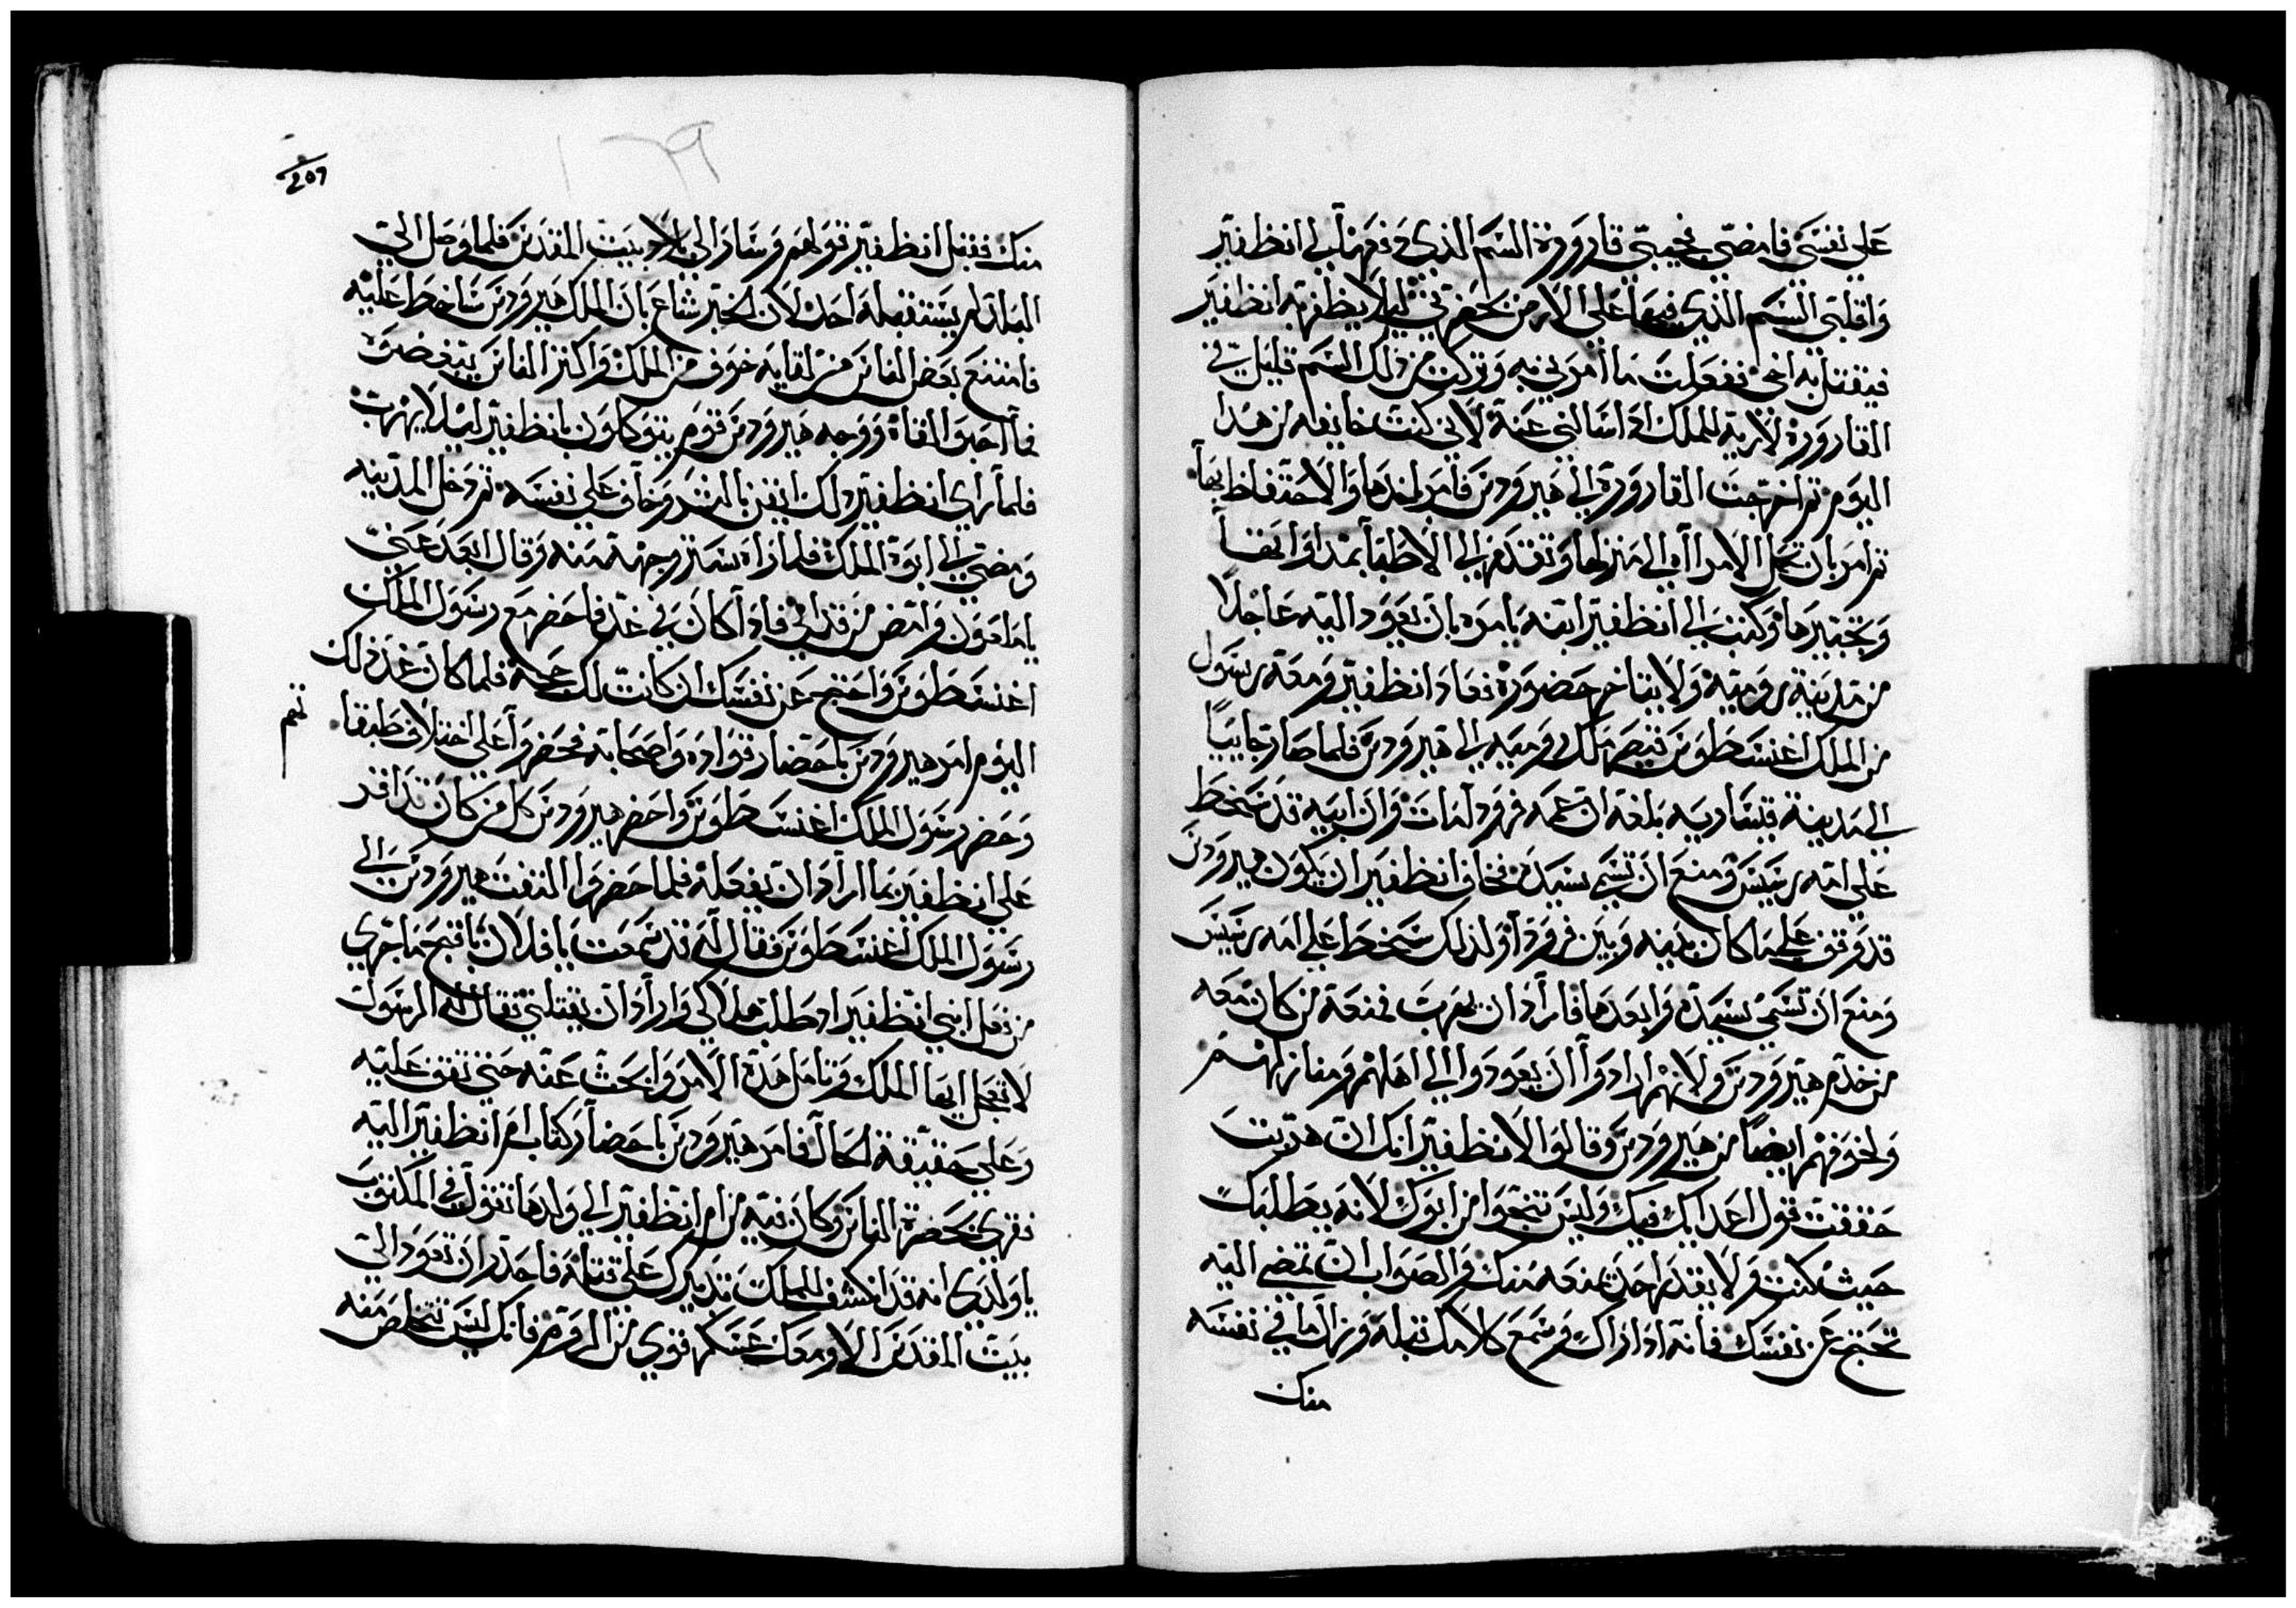 علي نفسي فامضي فجيبي قارورة السم الذي دفعها لي انطفتير
واقلبي السم الذي فيها علي الارض بحضرتي ليلا يظفر به انطفتير
فيقتل به اخي ففعلت ما امرني به وتركت من ذلك السم قليل في
القارورة لاريه للملك اذا سالني عنه لاني كنت خايفه من هدا
اليوم ثم اخرجت القارورة الي هيرودس فامر باخدها والاحتفاظ بها
ثم امر بان تحمل الامراه الي منزلها وتقدم الي الاطبا بمداواتها
وتجبيرها وكتب الي انطفتير ابنه يامره بان يعود اليه عاجلا
من مدينة رومية ولا يتاخر حضوره فعاد انطفتير ومعه رسول
من الملك اغنسطوس قيصر ملك روميه الي هيرودس فلما صار جاييا
الي مدينة قيساريه بلغه ان عمه فرودا مات وان ابيه قد سخط
علي امه رسيس ومنع ان تسمي سيده فخاف انطفتير ان يكون هيرودس
قد وقف علي ما كان بينه وبين فرودا ولذلك سخط علي امه رسيس
ومنع ان تسمي سيده وابعدها فاراد ان يهرب فمنعه من كان معه
من خدم هيرودس ولانهم ارادوا ان يعودوا الي اهلهم ومنازلهم
ولخوفهم ايضا من هيرودس وقالوا لانطفتير انك ان هربت
حققت قول اعدايك فيك وليس تنجوا من ابوك لانه يطلبك
حيث كنت ولا يقدر احد يمنعه منك والصواب ان تمضي اليه
تحتج عن نفسك فانه اذا راك وسمع كلامك قبله وزال ما في نفسه
منك
207
١٢٩
منك فقبل انطفتير قولهم وسار الي بلاد بيت المقدس فلما وصل الي
البلد لم يستقبله احد لان الخبر شاع بان الملك هيرودس ساخط عليه
فامتنع بعض الناس من لقايه خوف من الملك واكثر الناس يبغضوه
فما احبوا لقاه ووجه هيرودس قوم يتوكلون بانطفتير ليلا يهرب
فلما راي انطفتير ذلك ايقن بالشر وخاف علي نفسه ثم دخل المدينه
ومضي الي ابوه الملك فلما راه ستر وجهه منه وقال ابعد عني
يا ملعون وامض من قدامي فاذا كان في غد فاحضر مع رسول الملك
اغنسطوس واحتج عن نفسك ان كانت لك حجة فلما كان غد ذلك
اليوم امر هيرودس باحضار قواده واصحابه فحضروا علي اختلاف طبقا
تهم
وحضر رسول الملك اغنسطوس واحضر هيرودس كل من كان قد اقر
علي انطفتير بما اراد ان يفعله فلما حضروا التفت هيرودس الي
رسول الملك اغنسطوس فقال له قد سمعت يا فلان باقبح ما جري
من فعل ابني انطفتير اذ طلب هلاكي واراد ان يقتلني فقال له الرسول
لا تعجل ايها الملك وتامل هدة الامر وابحث عنه حتي تقف عليه
وعلي حقيقة الحال فامر هيرودس باحضار كتاب ام انطفتير اليه
فقري بحضرة الناس وكان فيه من ام انطفتير الي ولدها تقول في المكتوب
يا ولدي انه قد انكشف للملك تدبيرك علي قتله فاحذر ان تعود الي
بيت المقدس الا ومعك عسكر قوي من الروم فانك ليس تتخلص منه